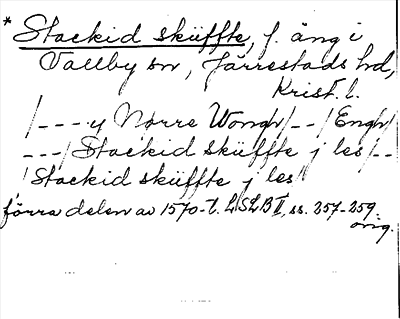 * Stackid sküffte, f. äng i
Vallby sn, Järrestads hd,
Krist. l.
/---y Nørre Wongh/--/Engh/
---/Stackid sküffte j les/--
/Stackid sküffte j les/
förra delen av 1570-t. LSLB II, ss. 257-259.
orig.